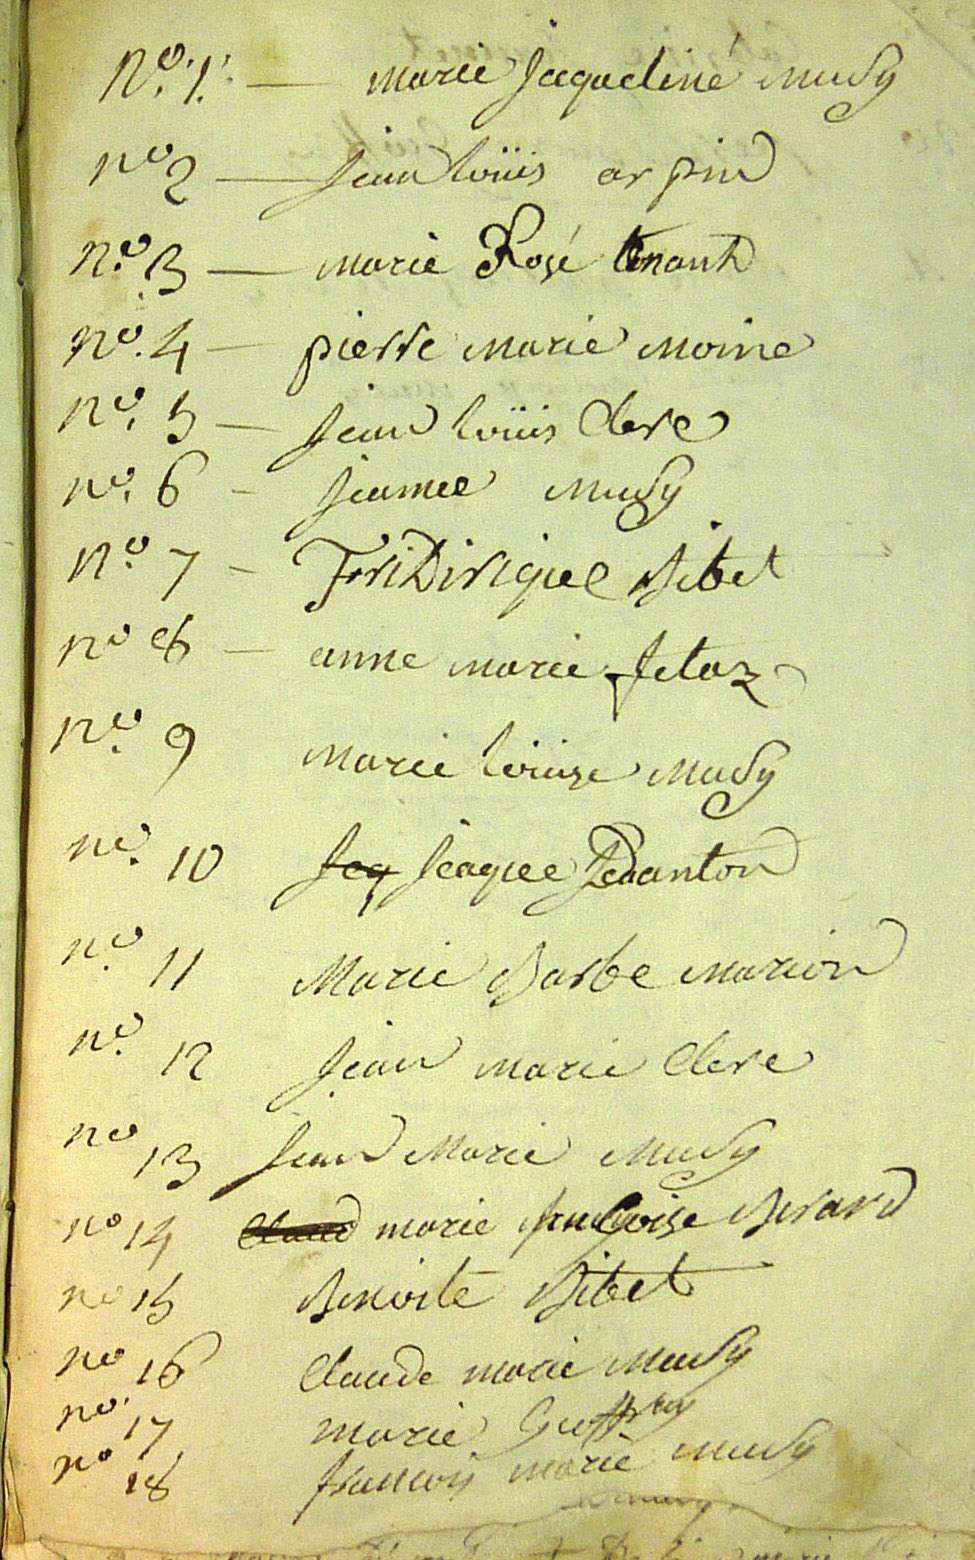 N.º 1. — marie jacqueliné musy
nº 2 — jean loüis arpin
n.º 3 — marie Rosé tenant
nº. 4 — pierre marie moine
nº. 5 — jean loüis Clere
nº. 6 — jeanne musy
nº. 7 — fridirique Bibet
nº 8 — anne marie jetaz
nº. 9 marie loüise musy
nº. 10 jaq jaque Jedanton
nº 11 Marie Barbe marion
nº. 12 jean marie Clere
nº 13 jean Marie musy
nº 14 Claud marie françoise Berard
nº 15 Benoite Bibet
nº 16 Claude marie musy
nº. 17 marie
nº 18 francois marie musy